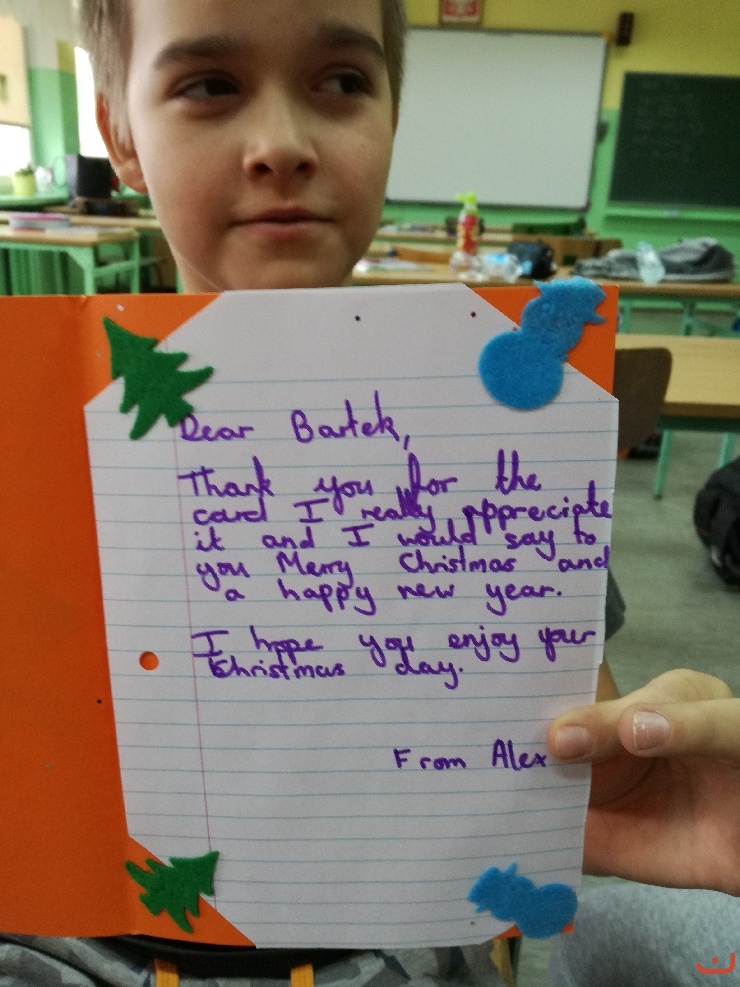 Dear Bartek,
Thank you for the
card I really appreciate
it and I would say to
you Merry Christmas and
a happy new year.
I hope you enjoy your
Christmas day.
From Alex